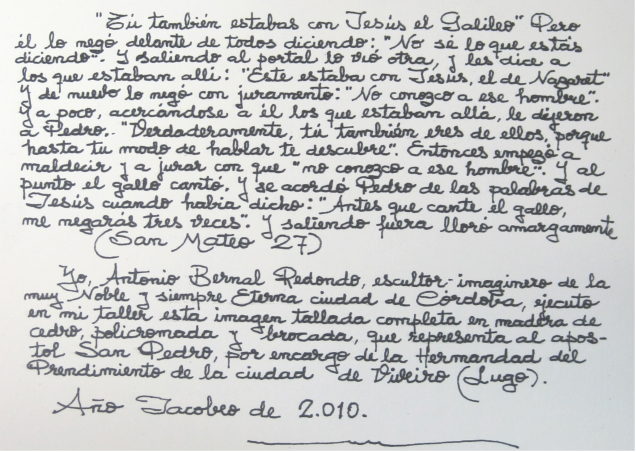 "Tú también estabas con Jesús el Galileo" Pero
él lo negó delante de todos diciendo: "No sé lo que estás
diciendo". Y saliendo al portal lo vió otra, y les dice a
los que estaban allí: "Este estaba con Jesús, el de Nazaret"
Y de nuevo lo negó con juramento: "No conozco a ese hombre".
Y a poco, acercándose a él los que estaban allá, le dijeron
a Pedro. "Verdaderamente, tú también eres de ellos, porque
hasta tu modo de hablar te descubre". Entonces empezó a
maldecir y a jurar con que "no conozco a ese hombre". Y al
punto el gallo cantó. Y se acordó Pedro de las palabras de
Jesús cuando había dicho: "Antes que cante el gallo,
me negarás tres veces". Y saliendo fuera lloró amargamente
(San Mateo 27)
Yo, Antonio Bernal Redondo, escultor-imaginero de la
muy Noble y siempre Eterna ciudad de Córdoba, ejecuto
en mi taller esta imagen tallada completa en madera de
cedro, policromada y brocada, que representa al após-
tol San Pedro, por encargo de la Hermandad del
Prendimiento de la ciudad de Viveiro (Lugo).
Año Jacobeo de 2.010.